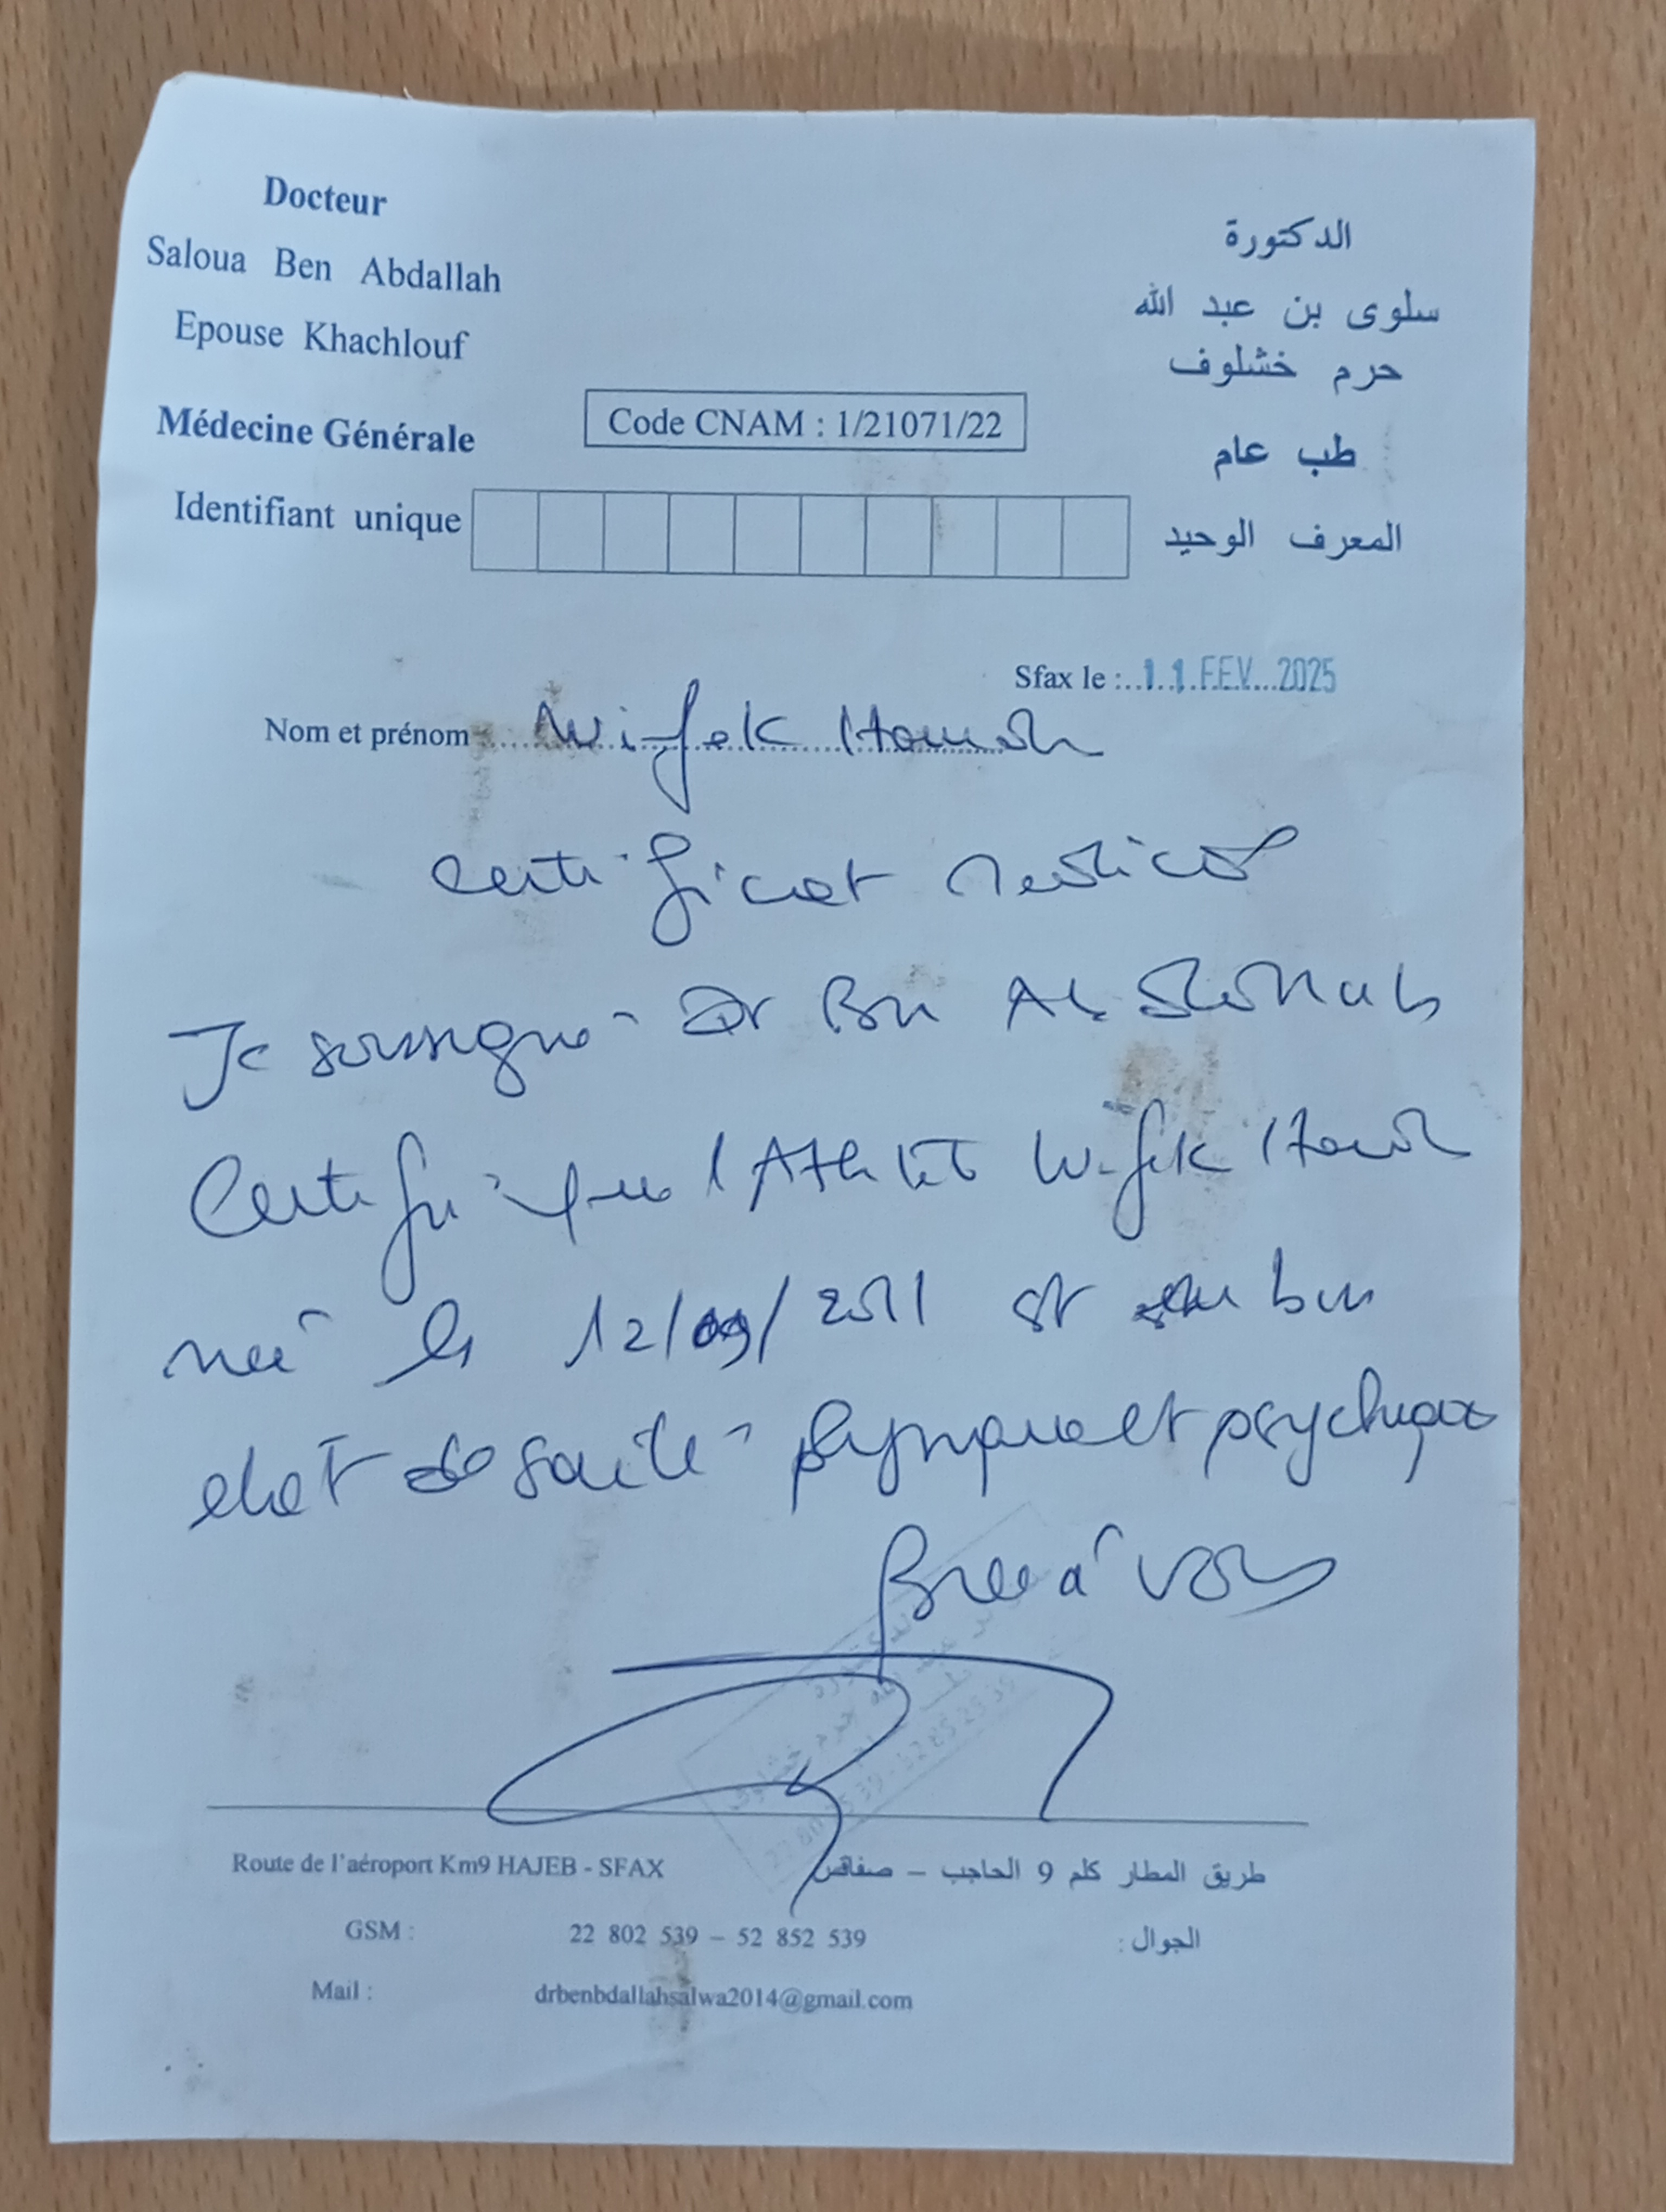 Docteur
Saloua Ben Abdallah
Epouse Khachlouf
Médecine Générale
الدكتورة
سلوى بن عبد الله
حرم خشلوف
طب عام
Code CNAM : 1/21071/22
Identifiant unique
المعرف الوحيد
Sfax le : 11 FEV. 2025
Nom et prénom Wifek
Certificat Medical
Je soussigné Dr Ben Abdallah
Certifie que l'Athlète Wifek
née le 12/09/2011 est en bon
etat de santé physique et psychique
طريق المطار كلم 9 الحاجب – صفاقس
Route de l'aéroport Km9 HAJEB - SFAX
GSM : 22 802 539 – 52 852 539 الجوال :
Mail : drbenbdallahsalwa2014@gmail.com